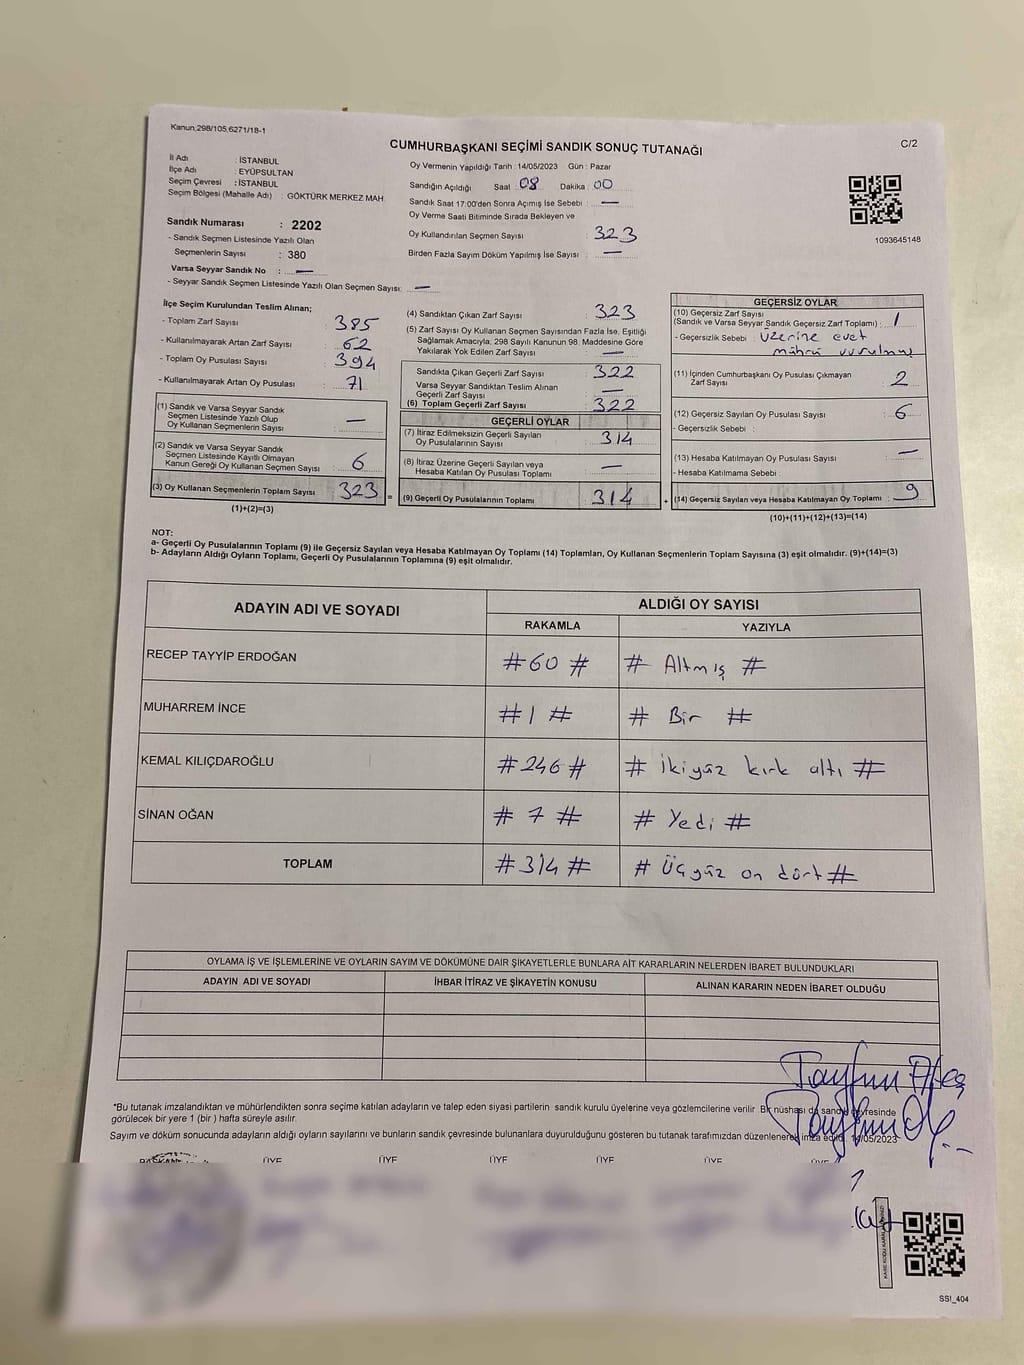 Kanun,298/105,6271/18-1
CUMHURBAŞKANI SEÇİMİ SANDIK SONUÇ TUTANAĞI
C/2
İl Adı : İSTANBUL
İlçe Adı : EYÜPSULTAN
Seçim Çevresi : İSTANBUL
Seçim Bölgesi (Mahalle Adı) : GÖKTÜRK MERKEZ MAH.
Sandık Numarası : 2202
- Sandık Seçmen Listesinde Yazılı Olan
Seçmenlerin Sayısı : 380
Varsa Seyyar Sandık No : —
- Seyyar Sandık Seçmen Listesinde Yazılı Olan Seçmen Sayısı: —
Oy Vermenin Yapıldığı Tarih : 14/05/2023 Gün : Pazar
Sandığın Açıldığı Saat : 08 Dakika : 00
Sandık Saat 17:00'den Sonra Açımış İse Sebebi : —
Oy Verme Saati Bitiminde Sırada Bekleyen ve
Oy Kullandırılan Seçmen Sayısı : 323
Birden Fazla Sayım Döküm Yapılmış İse Sayısı : —
1093645148
İlçe Seçim Kurulundan Teslim Alınan;
- Toplam Zarf Sayısı : 385
- Kullanılmayarak Artan Zarf Sayısı : 62
- Toplam Oy Pusulası Sayısı : 394
- Kullanılmayarak Artan Oy Pusulası : 71
(1) Sandık ve Varsa Seyyar Sandık
Seçmen Listesinde Yazılı Olup
Oy Kullanan Seçmenlerin Sayısı : —
(2) Sandık ve Varsa Seyyar Sandık
Seçmen Listesinde Kayıtlı Olmayan
Kanun Gereği Oy Kullanan Seçmen Sayısı : 6
(3) Oy Kullanan Seçmenlerin Toplam Sayısı : 323 =
(1)+(2)=(3)
(4) Sandıktan Çıkan Zarf Sayısı : 323
(5) Zarf Sayısı Oy Kullanan Seçmen Sayısından Fazla İse, Eşitliği
Sağlamak Amacıyla, 298 Sayılı Kanunun 98. Maddesine Göre
Yakılarak Yok Edilen Zarf Sayısı : —
Sandıkta Çıkan Geçerli Zarf Sayısı : 322
Varsa Seyyar Sandıktan Teslim Alınan
Geçerli Zarf Sayısı : —
(6) Toplam Geçerli Zarf Sayısı : 322
GEÇERLİ OYLAR
(7) İtiraz Edilmeksizin Geçerli Sayılan
Oy Pusulalarının Sayısı : 314
(8) İtiraz Üzerine Geçerli Sayılan veya
Hesaba Katılan Oy Pusulası Toplamı : —
(9) Geçerli Oy Pusulalarının Toplamı : 314 +
GEÇERSİZ OYLAR
(10) Geçersiz Zarf Sayısı
(Sandık ve Varsa Seyyar Sandık Geçersiz Zarf Toplamı) : 1
- Geçersizlik Sebebi : üzerine evet
mührü vurulmuş
(11) İçinden Cumhurbaşkanı Oy Pusulası Çıkmayan
Zarf Sayısı : 2
(12) Geçersiz Sayılan Oy Pusulası Sayısı : 6
- Geçersizlik Sebebi :
(13) Hesaba Katılmayan Oy Pusulası Sayısı : —
- Hesaba Katılmama Sebebi :
(14) Geçersiz Sayılan veya Hesaba Katılmayan Oy Toplamı : 9
(10)+(11)+(12)+(13)=(14)
NOT:
a- Geçerli Oy Pusulalarının Toplamı (9) ile Geçersiz Sayılan veya Hesaba Katılmayan Oy Toplamı (14) Toplamları, Oy Kullanan Seçmenlerin Toplam Sayısına (3) eşit olmalıdır. (9)+(14)=(3)
b- Adayların Aldığı Oyların Toplamı, Geçerli Oy Pusulalarının Toplamına (9) eşit olmalıdır.
ADAYIN ADI VE SOYADI
ALDIĞI OY SAYISI
RAKAMLA YAZIYLA
RECEP TAYYİP ERDOĞAN #60 # # Altmış #
MUHARREM İNCE #1 # # Bir #
KEMAL KILIÇDAROĞLU #246 # # ikiyüz kırk altı #
SİNAN OĞAN # 7 # # Yedi #
TOPLAM #314 # # Üçyüz on dört #
OYLAMA İŞ VE İŞLEMLERİNE VE OYLARIN SAYIM VE DÖKÜMÜNE DAİR ŞİKAYETLERLE BUNLARA AİT KARARLARIN NELERDEN İBARET BULUNDUKLARI
ADAYIN ADI VE SOYADI İHBAR İTİRAZ VE ŞİKAYETİN KONUSU ALINAN KARARIN NEDEN İBARET OLDUĞU
Tayfun
*Bu tutanak imzalandıktan ve mühürlendikten sonra seçime katılan adayların ve talep eden siyasi partilerin sandık kurulu üyelerine veya gözlemcilerine verilir. Bir nüshası da sandık çevresinde
görülecek bir yere 1 (bir ) hafta süreyle asılır.
Sayım ve döküm sonucunda adayların aldığı oyların sayılarını ve bunların sandık çevresinde bulunanlara duyurulduğunu gösteren bu tutanak tarafımızdan düzenlenerek imza edildi. 14/05/2023
BAŞKAN ÜYE ÜYE ÜYE ÜYE ÜYE ÜYE
SSI_404